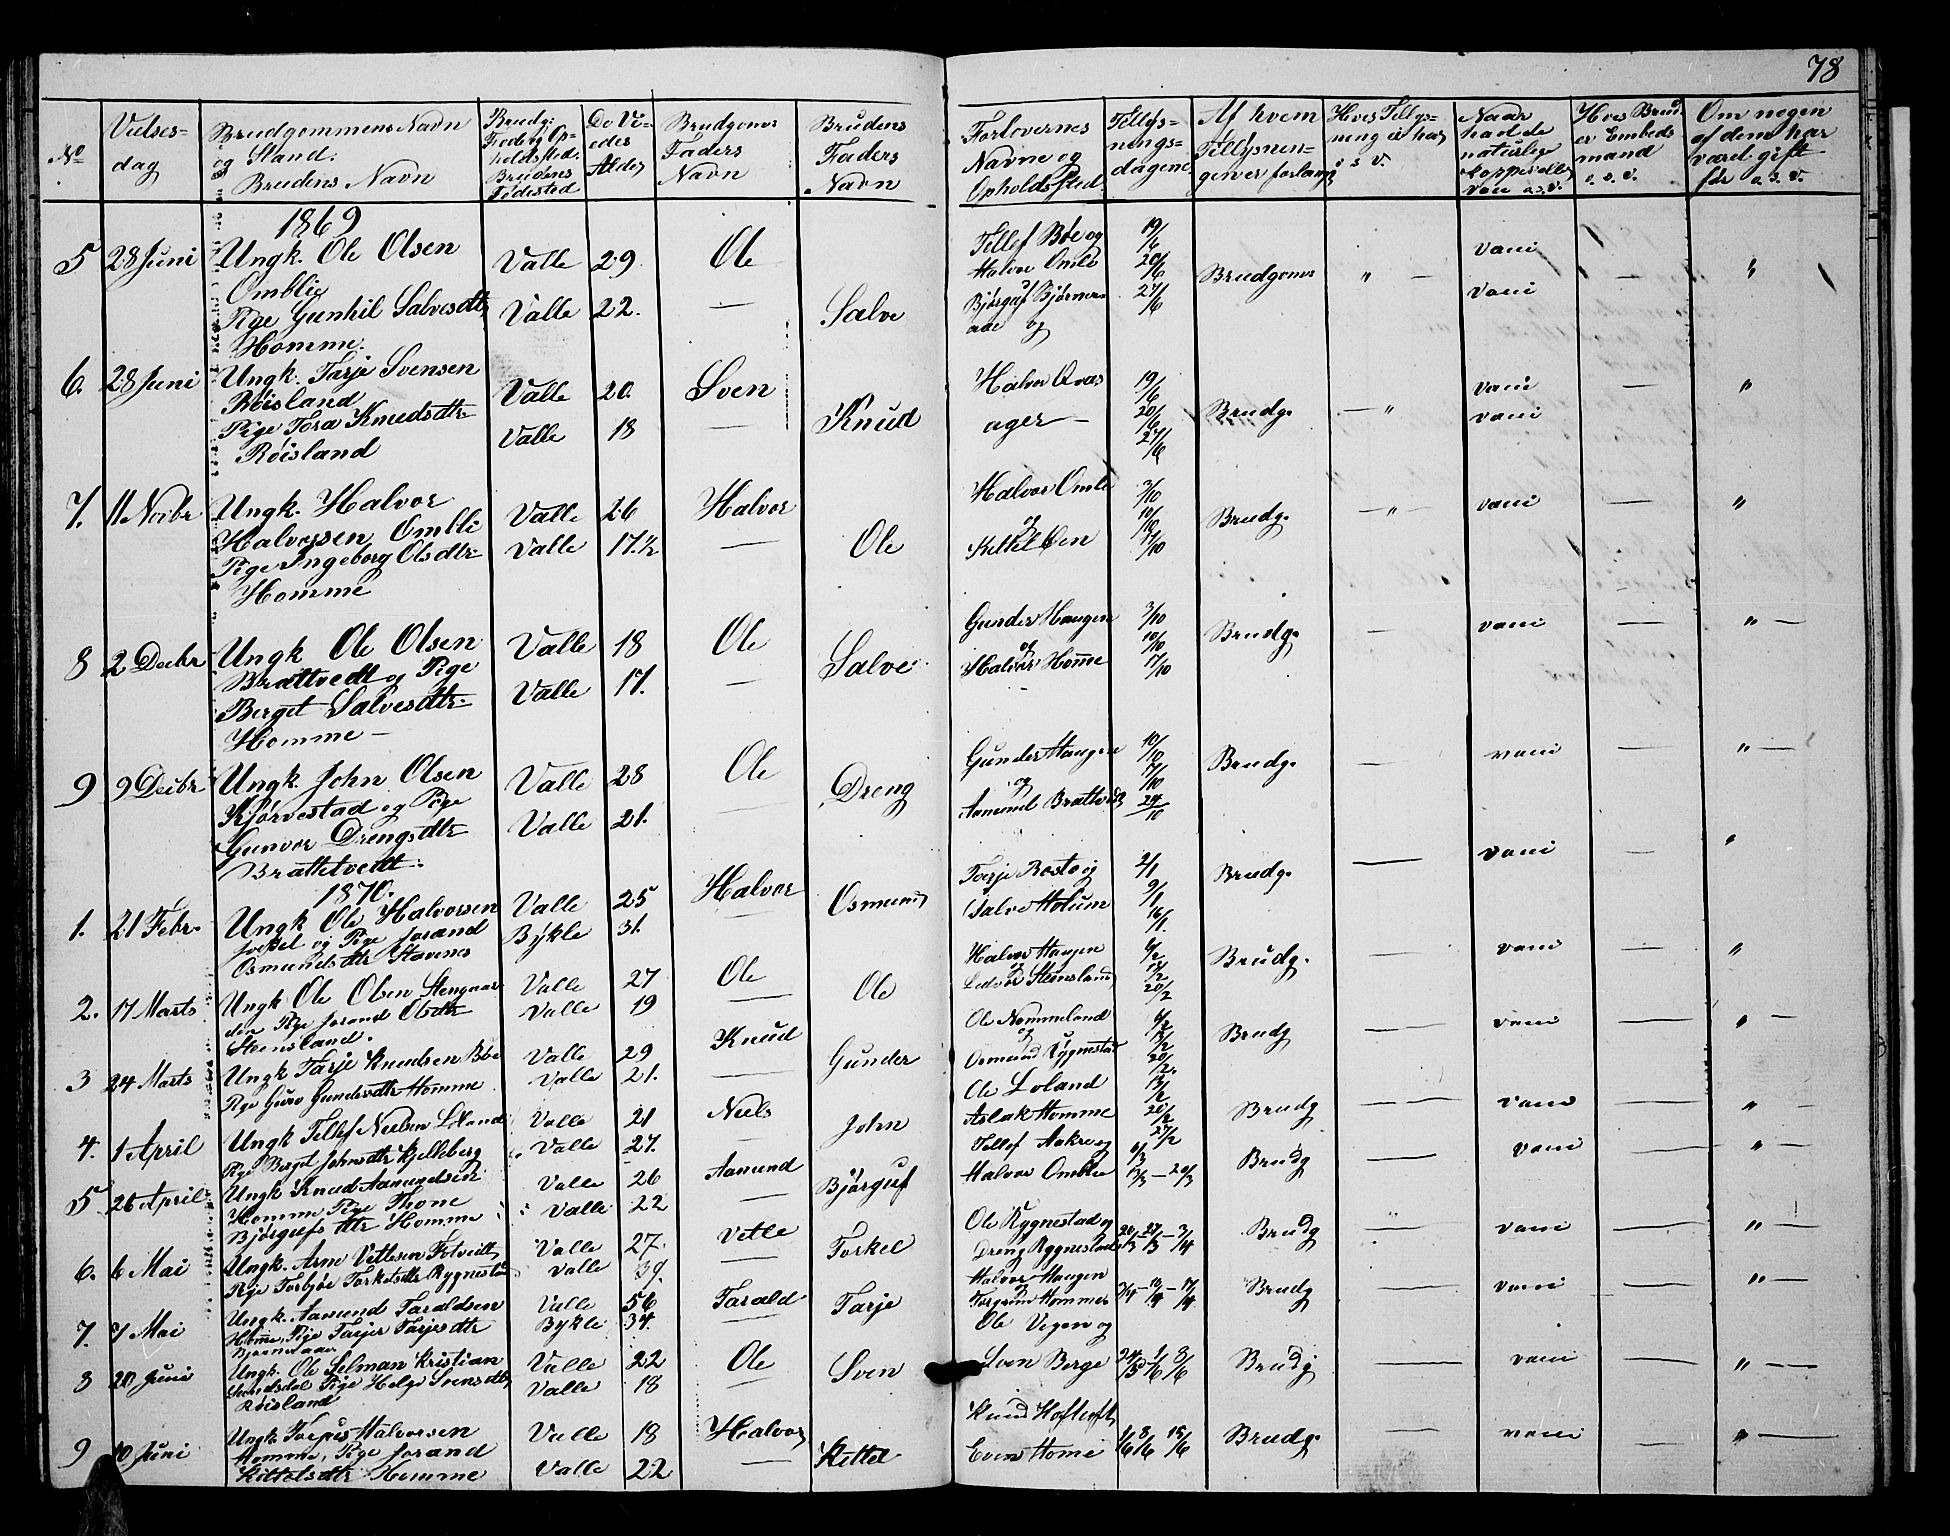 78
No
Vielses-
dag
Brudgommens Navn
og Stand.
Brudens Navn
Brudg:
Føde og Op-
holdssted.
Brudens
Fødested
De Vi-
edes
Alder
Brudgoms
Faders
Navn
Brudens
Faders
Navn
Forlovernes
Navne og
Opholdssted
Tillys-
nings-
dagene
Af hvem
Tillysnin-
gen er forlangt
Hvis Tillys-
ning ei har
u s v.
Naar
havde
naturlige
Kopper eller
vac. o.s.v.
Hvis Brud.
er Embeds
mand
o. s. v.
Om nogen
af dem har
været gift
før o. s. v.
1869
5 28 Juni Ungk. Ole Olsen Valle 29. Ole
Omblie
Pige Gunhil Salvesdtr Valle 22. — Salve
Homme.
Tellef Bøe og 19/6
Halvor Omli 20/6 Brudgoms " — vaci — "
Bjørguf Bjørnar- 27/6 vaci
aae og
6. 28 Juni Ungk. Tarje Svensen Valle 20. Sven
Røisland
Pige Tora Knudsdtr. Valle 18 — Knud
Røisland
Halvor Aaas 19/6 vaci — "
ager — 20/6 Brudg. — " vaci
27/6
7. 11 Novbr Ungk. Halvor Valle 26 Halvor
Halvorsen Ombli Valle 17.½ — Ole
Pige Ingeborg Olsdtr.
Homme
Halvor Omli 3/10
og 10/10 Brudg. — " — vaci — "
Kittil Øen 17/10
8 2 Decbr Ungk Ole Olsen Valle 18 Ole
Brattvedt og Pige Valle 17. — Salve
Berget Salvesdtr.
Homme —
Gunder Haugen 3/10
og 10/10 Brudg. — vaci — " —
Halvor Homme 17/10
9 9 Decbr Ungk. John Olsen Valle 28 Ole
Kjørvestad og Pige Valle 21. — Dreng
Gunvor Drengsdtr
Brattetvedt.
Gunder Haugen 10/10
og 17/10 Brudg. — vaci — " —
Aamund Brattvedt 24/10
1870.
1. 21 Febr. Ungk Ole Halvorsen Valle 25 Halvor
og Pige Jorand Bykle 31. — Osmund
Osmundsdtr Stavenes
Tarje Rostøig 2/1 Brudg. — vaci — "
Salve Holum 9/1
16/1.
2. 17 Marts Ungk Ole Olsen Stengaar Valle 27 Ole
den Pige Jorand Olsdtr Valle 19 — Ole
Steensland.
Halvor Haugen 6/2 Brudg. — vaci — "
og 13/2
Ledvor Steensland 20/2
3 24 Marts Ungk Tarje Knudsen Bøe Valle 29 Knud
Pige Guro Gundersdtr Homme Valle 21. — Gunder
Ole Nommeland 6/2 Brudg — vaci — " —
og 13/2
Osmund Rygnestad 20/2.
4. 1 April Ungk Tellef Nielsen Loland Valle 21 Niels
Pige Berget Johnsdtr Kjelleberg Valle 27. — John
Ole Loland 13/2
Aslak Homme 20/2 Brudg — vaci — " —
27/2
5 26 April Ungk Knud Aamundsen Valle 26 Aamund
Homme Pige Thone Valle 22 — Bjørguf
Bjørgufs dtr Homme
Tellef Aakre og 6/3
Halvor Omblie 13/3 — 20/3 Brudg — vaci — "
6. 6 Mai Ungk. Arne Vetlesen Tveidt Valle 27. Vetle
Pige Torbjør Torkelsdtr Rygnestad Valle 39. — Torkel
Ole Rygnestad og
Dreng Rygnestad 20/3 27/3 — 3/4 Brudg — vaci — " —
7. 7 Mai Ungk. Aamund Taraldsen Valle 56 Tarald
Homme, Pige Tarjer Tarjesdtr Bykle 34. — Tarje
Halvor Haugen
og
Torgrim Homme 3/4 — 10/4 — 17/4 Brudg — vaci — " —
8 20 Juni Ungk. Ole Selman Kristian Valle 22 Ole
Pige Helge Svensdtr Valle 18 — Sven
Røisland
Ole Vegen og
Sven Berge 24/5 1/6 8/6 Brudg — vaci — " —
9 10 Juni Ungk. Halvorsen Valle 18 Halvor
Homme, Pige Jorand Valle 22 — Kittel
Kittelsdtr Homme
Knud
Even Homme 1/6 8/6 15/6 Brudg. — vaci — " —